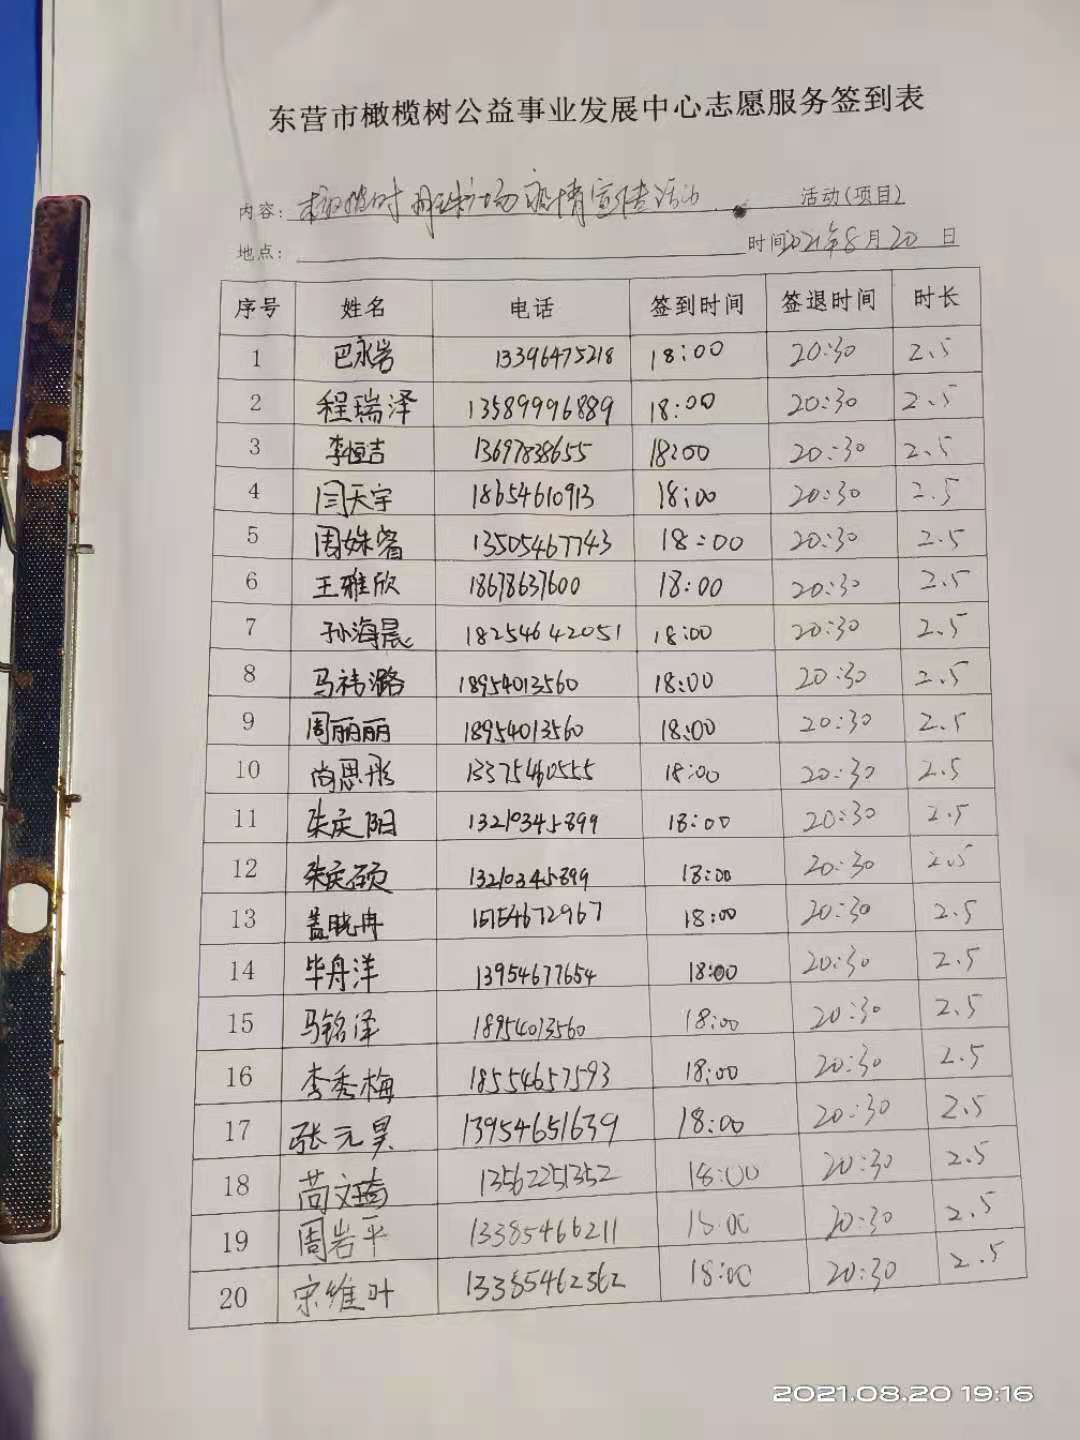 东营市橄榄树公益事业发展中心志愿服务签到表
内容: 橄榄树 广场疫情宣传活动 活动(项目)
地点: 时间2021年8月20日
序号 姓名 电话 签到时间 签退时间 时长
1 巴永岩 13396475218 18:00 20:30 2.5
2 程瑞泽 13589996889 18:00 20:30 2.5
3 李恒吉 13697838655 18:00 20:30 2.5
4 闫天宇 18654610913 18:00 20:30 2.5
5 周姝 13505467743 18:00 20:30 2.5
6 王雅欣 18678637600 18:00 20:30 2.5
7 孙海晨 18254642051 18:00 20:30 2.5
8 马祎潞 18954013560 18:00 20:30 2.5
9 周丽丽 18954013560 18:00 20:30 2.5
10 尚思彤 13375460555 18:00 20:30 2.5
11 朱庆阳 13210345899 18:00 20:30 2.5
12 朱庆硕 13210345899 18:00 20:30 2.5
13 盖晓冉 15154672967 18:00 20:30 2.5
14 毕舟洋 13954677654 18:00 20:30 2.5
15 马铭泽 18954013560 18:00 20:30 2.5
16 李秀梅 18554657593 18:00 20:30 2.5
17 张元昊 13954651639 18:00 20:30 2.5
18 尚文琦 13562251352 18:00 20:30 2.5
19 周岩平 13385466211 18:00 20:30 2.5
20 宋维叶 13385462362 18:00 20:30 2.5
2021.08.20 19:16